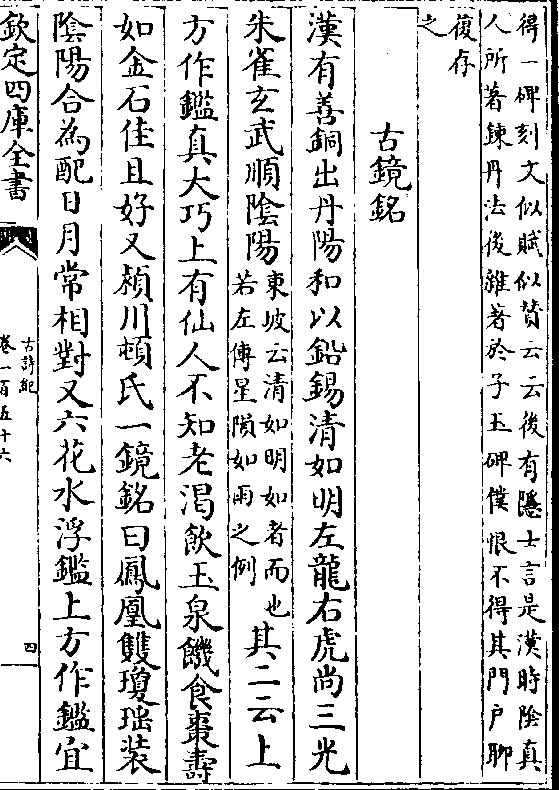 得一碑刻文似賦似贊云云後有隱士言是漢時陰真
人所著鍊丹法後雜著於子玉碑僕恨不得其門戶聊
復存
之
古鏡銘
漢有善銅出丹陽和以鉛錫清如明左龍右虎尚三光
朱雀玄武順陰陽東坡云清如明如者而也
若左傳星隕如雨之例其二云上
方作鑑真大巧上有仙人不知老渴飲玉泉饑食棗壽
如金石佳且好又潁川頓氏一鏡銘曰鳳凰雙瓊瑶装
陰陽合為配日月常相對又六花水浮鑑上方作鑑宜
欽定四庫全書
古詩紀
卷一百五十六
四